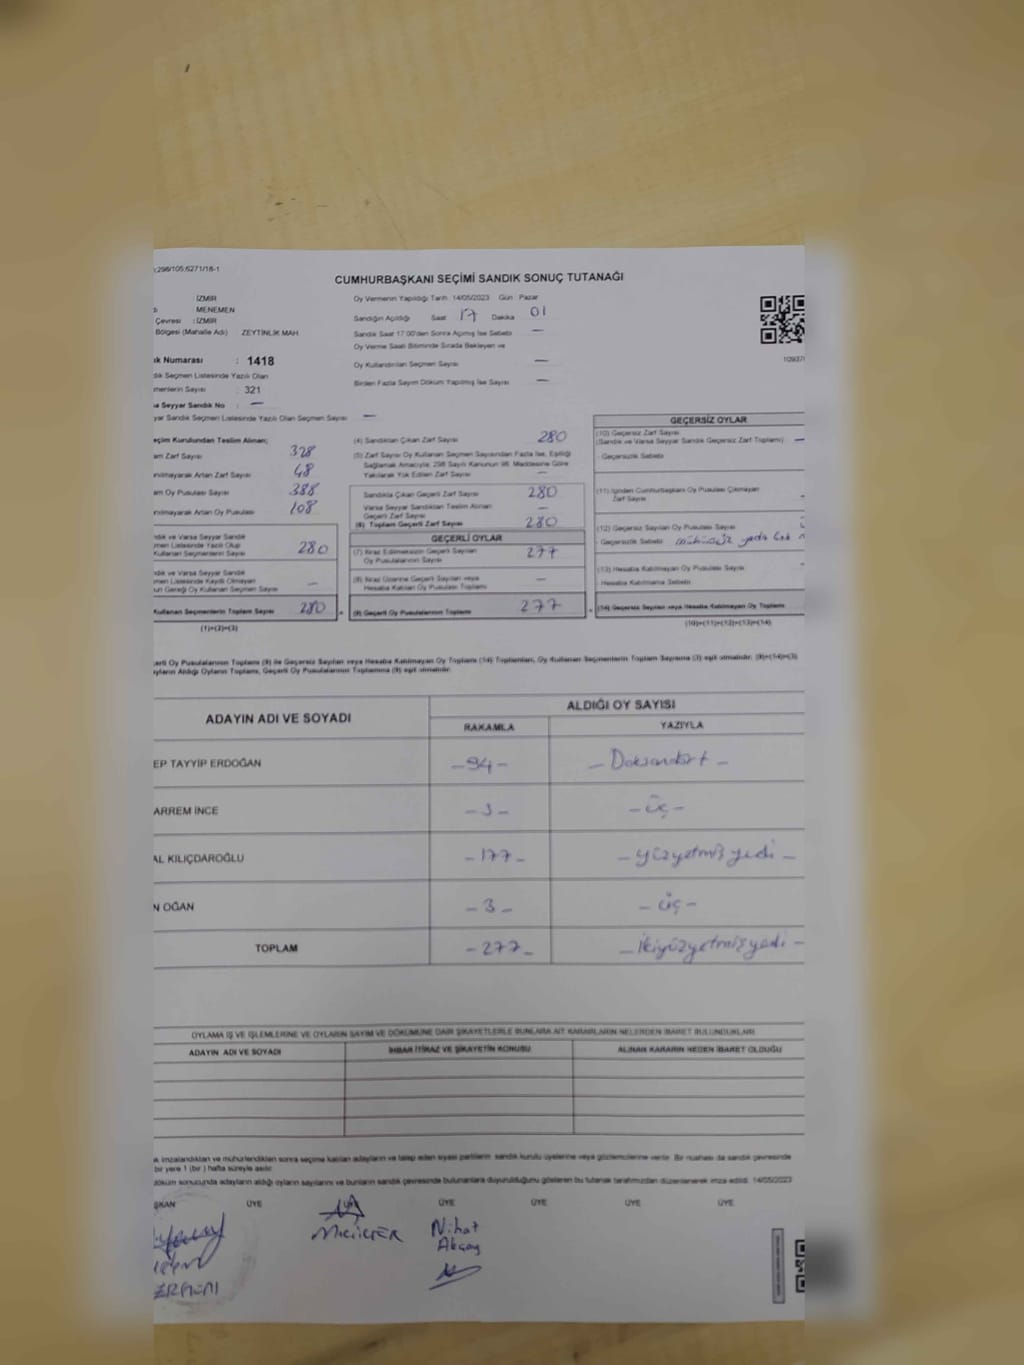 :298/105,6271/16-1
CUMHURBAŞKANI SEÇİMİ SANDIK SONUÇ TUTANAĞI
İZMİR
MENEMEN
Çevresi : İZMİR
Bölgesi (Mahalle Adı) ZEYTİNLİK MAH.
Numarası : 1418
Seçmen Listesinde Yazılı Olan
menlerin Sayısı : 321
Seyyar Sandık No : —
yar Sandık Seçmen Listesinde Yazılı Olan Seçmen Sayısı : —
Oy Vermenin Yapıldığı Tarih : 14/05/2023 Gün : Pazar
Sandığın Açıldığı Saat 17 Dakika 01
Sandık Saat 17:00'den Sonra Açılmış İse Sebebi —
Oy Verme Saati Bitiminde Sırada Bekleyen ve
Oy Kullandırılan Seçmen Sayısı —
Birden Fazla Sayım Döküm Yapılmış İse Sayısı —
10937
çim Kurulundan Teslim Alınan;
am Zarf Sayısı 328
nılmayarak Artan Zarf Sayısı 48
am Oy Pusulası Sayısı 388
nılmayarak Artan Oy Pusulası 108
ndık ve Varsa Seyyar Sandık
men Listesinde Yazılı Olup
Kullanan Seçmenlerin Sayısı 280
ndık ve Varsa Seyyar Sandık
men Listesinde Kayıtlı Olmayan
un Gereği Oy Kullanan Seçmen Sayısı —
Kullanan Seçmenlerin Toplam Sayısı 280
(1)+(2)=(3)
(4) Sandıktan Çıkan Zarf Sayısı 280
(5) Zarf Sayısı Oy Kullanan Seçmen Sayısından Fazla İse, Eşitliği
Sağlamak Amacıyla, 298 Sayılı Kanunun 98. Maddesine Göre
Yakılarak Yok Edilen Zarf Sayısı —
Sandıkta Çıkan Geçerli Zarf Sayısı 280
Varsa Seyyar Sandıktan Teslim Alınan
Geçerli Zarf Sayısı —
(6) Toplam Geçerli Zarf Sayısı 280
GEÇERLİ OYLAR
(7) İtiraz Edilmeksizin Geçerli Sayılan
Oy Pusulalarının Sayısı 277
(8) İtiraz Üzerine Geçerli Sayılan veya
Hesaba Katılan Oy Pusulası Toplamı —
(9) Geçerli Oy Pusulalarının Toplamı 277
GEÇERSİZ OYLAR
(10) Geçersiz Zarf Sayısı
(Sandık ve Varsa Seyyar Sandık Geçersiz Zarf Toplamı) —
- Geçersizlik Sebebi
(11) İçinden Cumhurbaşkanı Oy Pusulası Çıkmayan
Zarf Sayısı
(12) Geçersiz Sayılan Oy Pusulası Sayısı
- Geçersizlik Sebebi mühürsüz yada
(13) Hesaba Katılmayan Oy Pusulası Sayısı
- Hesaba Katılmama Sebebi
(14) Geçersiz Sayılan veya Hesaba Katılmayan Oy Toplamı
(10)+(11)+(12)+(13)=(14)
erli Oy Pusulalarının Toplamı (9) ile Geçersiz Sayılan veya Hesaba Katılmayan Oy Toplamı (14) Toplamları, Oy Kullanan Seçmenlerin Toplam Sayısına (3) eşit olmalıdır. (9)+(14)=(3)
yların Aldığı Oyların Toplamı, Geçerli Oy Pusulalarının Toplamına (9) eşit olmalıdır.
ADAYIN ADI VE SOYADI ALDIĞI OY SAYISI
RAKAMLA YAZIYLA
EP TAYYİP ERDOĞAN -94- - Doksandört -
ARREM İNCE -3- - üç -
AL KILIÇDAROĞLU -177- - yüzyetmiş yedi -
N OĞAN -3- - üç -
TOPLAM -277- - ikiyüzyetmişyedi -
OYLAMA İŞ VE İŞLEMLERİNE VE OYLARIN SAYIM VE DÖKÜMÜNE DAİR ŞİKAYETLERLE BUNLARA AİT KARARLARIN NELERDEN İBARET BULUNDUKLARI
ADAYIN ADI VE SOYADI İHBAR İTİRAZ VE ŞİKAYETİN KONUSU ALINAN KARARIN NEDEN İBARET OLDUĞU
k imzalandıktan ve mühürlendikten sonra seçime katılan adayların ve talep eden siyasi partilerin sandık kurulu üyelerine veya gözlemcilerine verilir. Bir nüshası da sandık çevresinde
bir yere 1 (bir) hafta süreyle asılır.
döküm sonucunda adayların aldığı oyların sayılarını ve bunların sandık çevresinde bulunanlara duyurulduğunu gösteren bu tutanak tarafımızdan düzenlenerek imza edildi. 14/05/2023
ŞKAN ÜYE ÜYE ÜYE ÜYE ÜYE
Nihat
Akçay